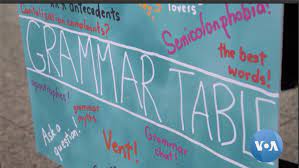 antecedents
lovers
Capitalization complaints?
Semicolonphobia!
the best
words!
GRAMMAR TABLE
apostrophes!
grammar
myths
Grammar
chat!
Ask a
question!
Vent!
VOA